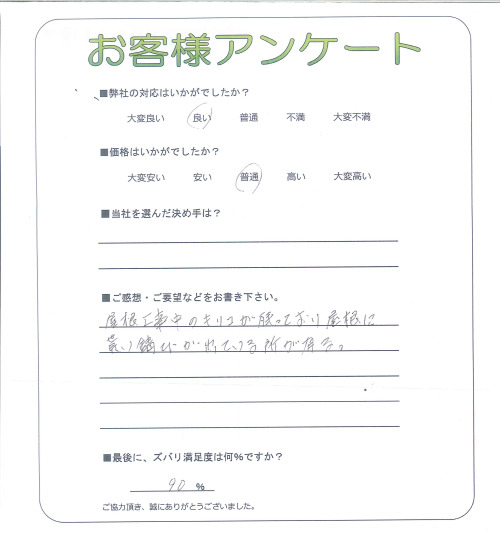 お客様アンケート
■弊社の対応はいかがでしたか？
大変良い 良い 普通 不満 大変不満
■価格はいかがでしたか？
大変安い 安い 普通 高い 大変高い
■当社を選んだ決め手は？
■ご感想・ご要望などをお書き下さい。
屋根工事中のキリコが残っており屋根に
錆びが出ている所が有る。
■最後に、ズバリ満足度は何%ですか？
90 %
ご協力頂き、誠にありがとうございました。